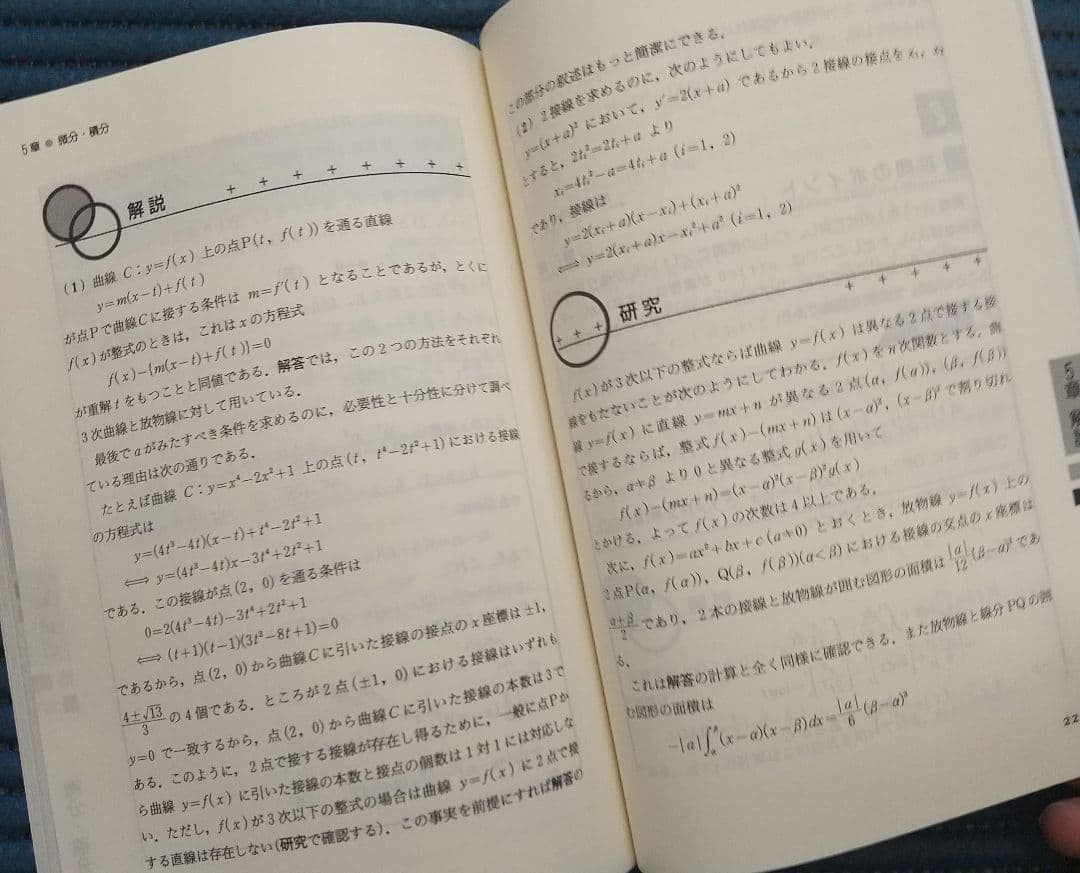 5章 ● 微分・積分
解説
(1) 曲線 C：y=f(x) 上の点P(t, f(t)) を通る直線
y=m(x−t)+f(t)
が点Pで曲線Cに接する条件は m=f′(t) となることであるが，とくに
f(x) が整式のときは，これは x の方程式
f(x)−{m(x−t)+f(t)}=0
が重解 t をもつことと同値である．解答では，この2つの方法をそれぞれ
3次曲線と放物線に対して用いている．
最後で a がみたすべき条件を求めるのに，必要性と十分性に分けて調べ
ている理由は次の通りである．
たとえば曲線 C：y=x⁴−2x²+1 上の点(t, t⁴−2t²+1) における接線
の方程式は
y=(4t³−4t)(x−t)+t⁴−2t²+1
⟺ y=(4t³−4t)x−3t⁴+2t²+1
である．この接線が点(2, 0) を通る条件は
0=2(4t³−4t)−3t⁴+2t²+1
⟺ (t+1)(t−1)(3t²−8t+1)=0
であるから，点(2, 0) から曲線Cに引いた接線の接点の x 座標は ±1，
(4±√13)/3 の4個である．ところが2点(±1, 0) における接線はいずれも
y=0 で一致するから，点(2, 0) から曲線Cに引いた接線の本数は3で
ある．このように，2点で接する接線が存在し得るために，一般に点Pか
ら曲線 y=f(x) に引いた接線の本数と接点の個数は1対1には対応しな
い．ただし，f(x) が3次以下の整式の場合は曲線 y=f(x) に2点で接
する直線は存在しない(研究で確認する)．この事実を前提にすれば解答の
この部分の叙述はもっと簡潔にできる．
(2) 2接線を求めるのに，次のようにしてもよい．
y=(x+a)² において，y′=2(x+a) であるから2接線の接点を x₁, x₂
とすると，2tᵢ²=2tᵢ+a より
xᵢ=4tᵢ²−a=4tᵢ+a (i=1, 2)
であり，接線は
y=2(xᵢ+a)(x−xᵢ)+(xᵢ+a)²
⟺ y=2(xᵢ+a)x−xᵢ²+a² (i=1, 2)
研究
f(x) が3次以下の整式ならば曲線 y=f(x) は異なる2点で接する接
線をもたないことが次のようにしてわかる．f(x) を n 次関数とする．曲
線 y=f(x) に直線 y=mx+n が異なる2点(α, f(α)), (β, f(β))
で接するならば，整式 f(x)−(mx+n) は (x−α)², (x−β)² で割り切れ
るから，α≠β より 0 と異なる整式 g(x) を用いて
f(x)−(mx+n)=(x−α)²(x−β)²g(x)
とかける．よって f(x) の次数は4以上である．
次に，f(x)=ax²+bx+c (a≠0) とおくとき，放物線 y=f(x) 上の
2点P(α, f(α)), Q(β, f(β))(α<β) における接線の交点の x 座標は
(α+β)/2 であり，2本の接線と放物線が囲む図形の面積は |a|/12 (β−α)³ であ
る．
これは解答の計算と全く同様に確認できる．また放物線と線分PQの囲
む図形の面積は
−|a|∫_α^β (x−α)(x−β)dx=|a|/6 (β−α)³
5章 解説
22